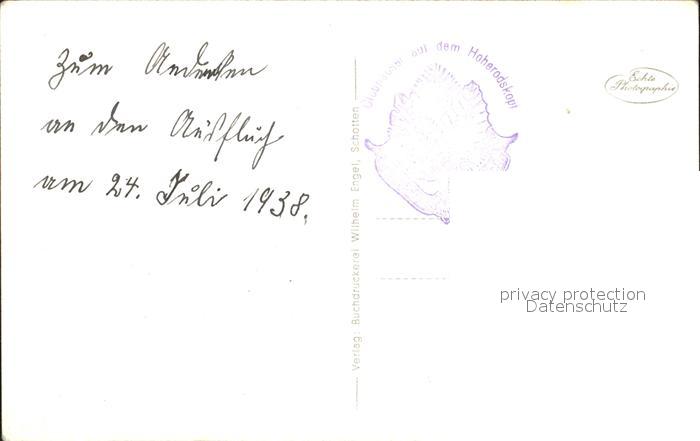 Zum Andenken
an den Ausfluch
am 24. Juli 1938.
Verlag: Buchdruckerei Wilhelm Engel, Schotten
auf dem Hoherodskopf
Echte
Photographie
privacy protection
Datenschutz